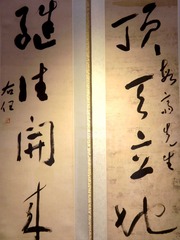 頂天立地
先生
繼往開來
右任